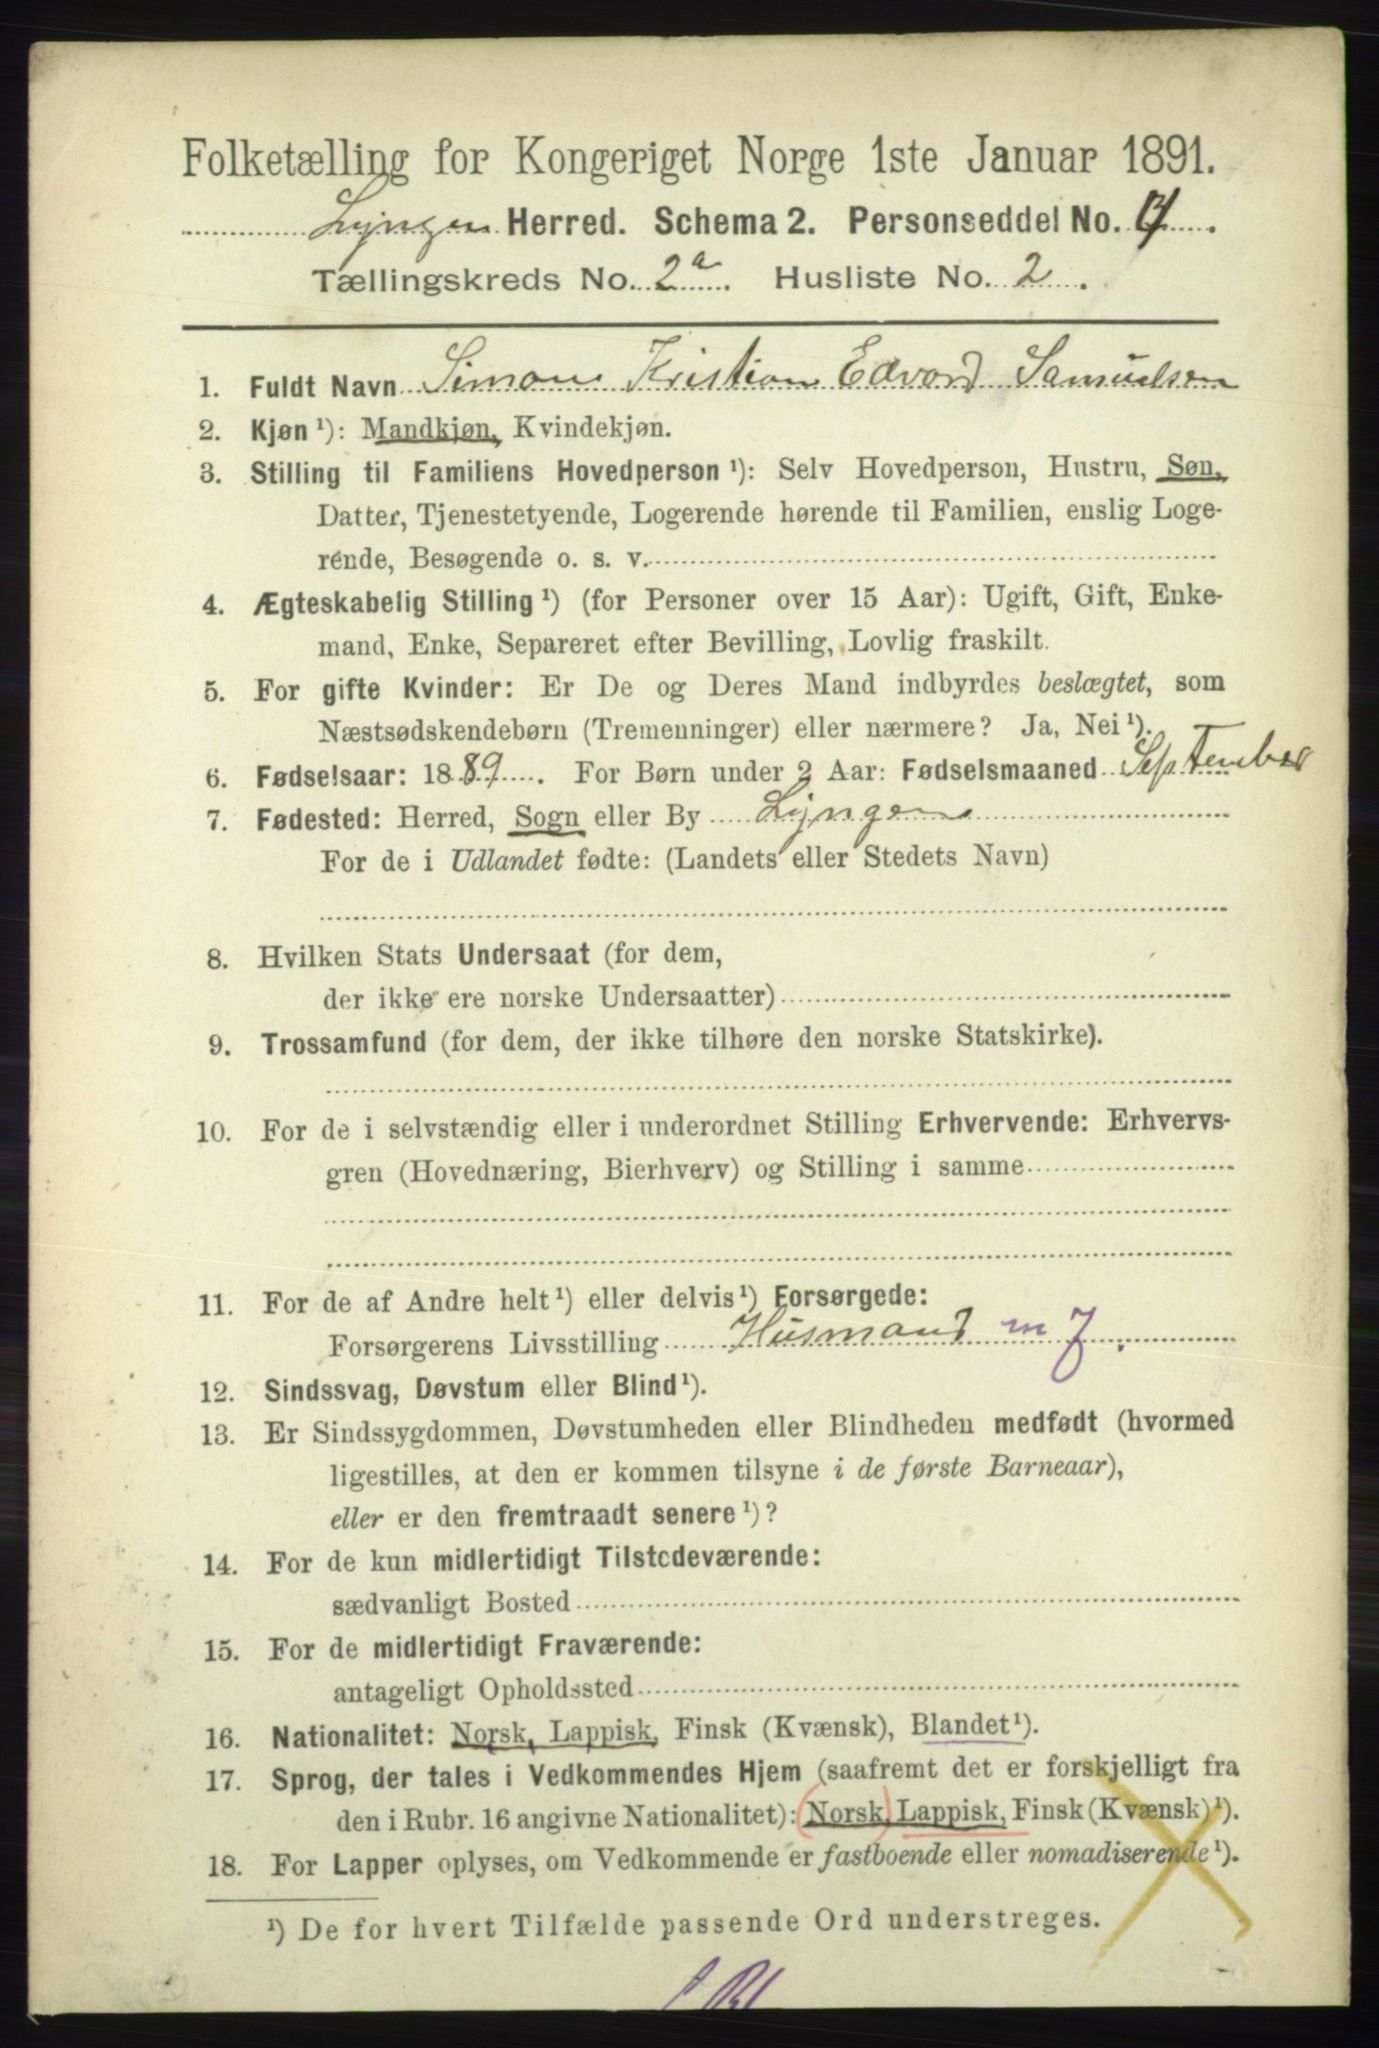 Folketælling for Kongeriget Norge 1ste Januar 1891.
Lyngen Herred. Schema 2. Personseddel No.
Tællingskreds No. 2a. Husliste No. 2.
1. Fuldt Navn Simon Kristian Edvard Samuelsen
2. Kjøn ¹): Mandkjøn, Kvindekjøn.
3. Stilling til Familiens Hovedperson ¹): Selv Hovedperson, Hustru, Søn,
Datter, Tjenestetyende, Logerende hørende til Familien, enslig Loge-
rende, Besøgende o. s. v.
4. Ægteskabelig Stilling ¹) (for Personer over 15 Aar): Ugift, Gift, Enke-
mand, Enke, Separeret efter Bevilling, Lovlig fraskilt.
5. For gifte Kvinder: Er De og Deres Mand indbyrdes beslægtet, som
Næstsødskendebørn (Tremenninger) eller nærmere? Ja, Nei ¹).
6. Fødselsaar: 1889. For Børn under 2 Aar: Fødselsmaaned September
7. Fødested: Herred, Sogn eller By Lyngen
For de i Udlandet fødte: (Landets eller Stedets Navn)
8. Hvilken Stats Undersaat (for dem,
der ikke ere norske Undersaatter)
9. Trossamfund (for dem, der ikke tilhøre den norske Statskirke).
10. For de i selvstændig eller i underordnet Stilling Erhvervende: Erhvervs-
gren (Hovednæring, Bierhverv) og Stilling i samme
11. For de af Andre helt ¹) eller delvis ¹) Forsørgede:
Forsørgerens Livsstilling Husmand m J.
12. Sindssvag, Døvstum eller Blind ¹).
13. Er Sindssygdommen, Døvstumheden eller Blindheden medfødt (hvormed
ligestilles, at den er kommen tilsyne i de første Barneaar),
eller er den fremtraadt senere ¹)?
14. For de kun midlertidigt Tilstedeværende:
sædvanligt Bosted
15. For de midlertidigt Fraværende:
antageligt Opholdssted
16. Nationalitet: Norsk, Lappisk, Finsk (Kvænsk), Blandet ¹).
17. Sprog, der tales i Vedkommendes Hjem (saafremt det er forskjelligt fra
den i Rubr. 16 angivne Nationalitet): (Norsk,) Lappisk, Finsk (Kvænsk) ¹).
18. For Lapper oplyses, om Vedkommende er fastboende eller nomadiserende ¹).
¹) De for hvert Tilfælde passende Ord understreges.